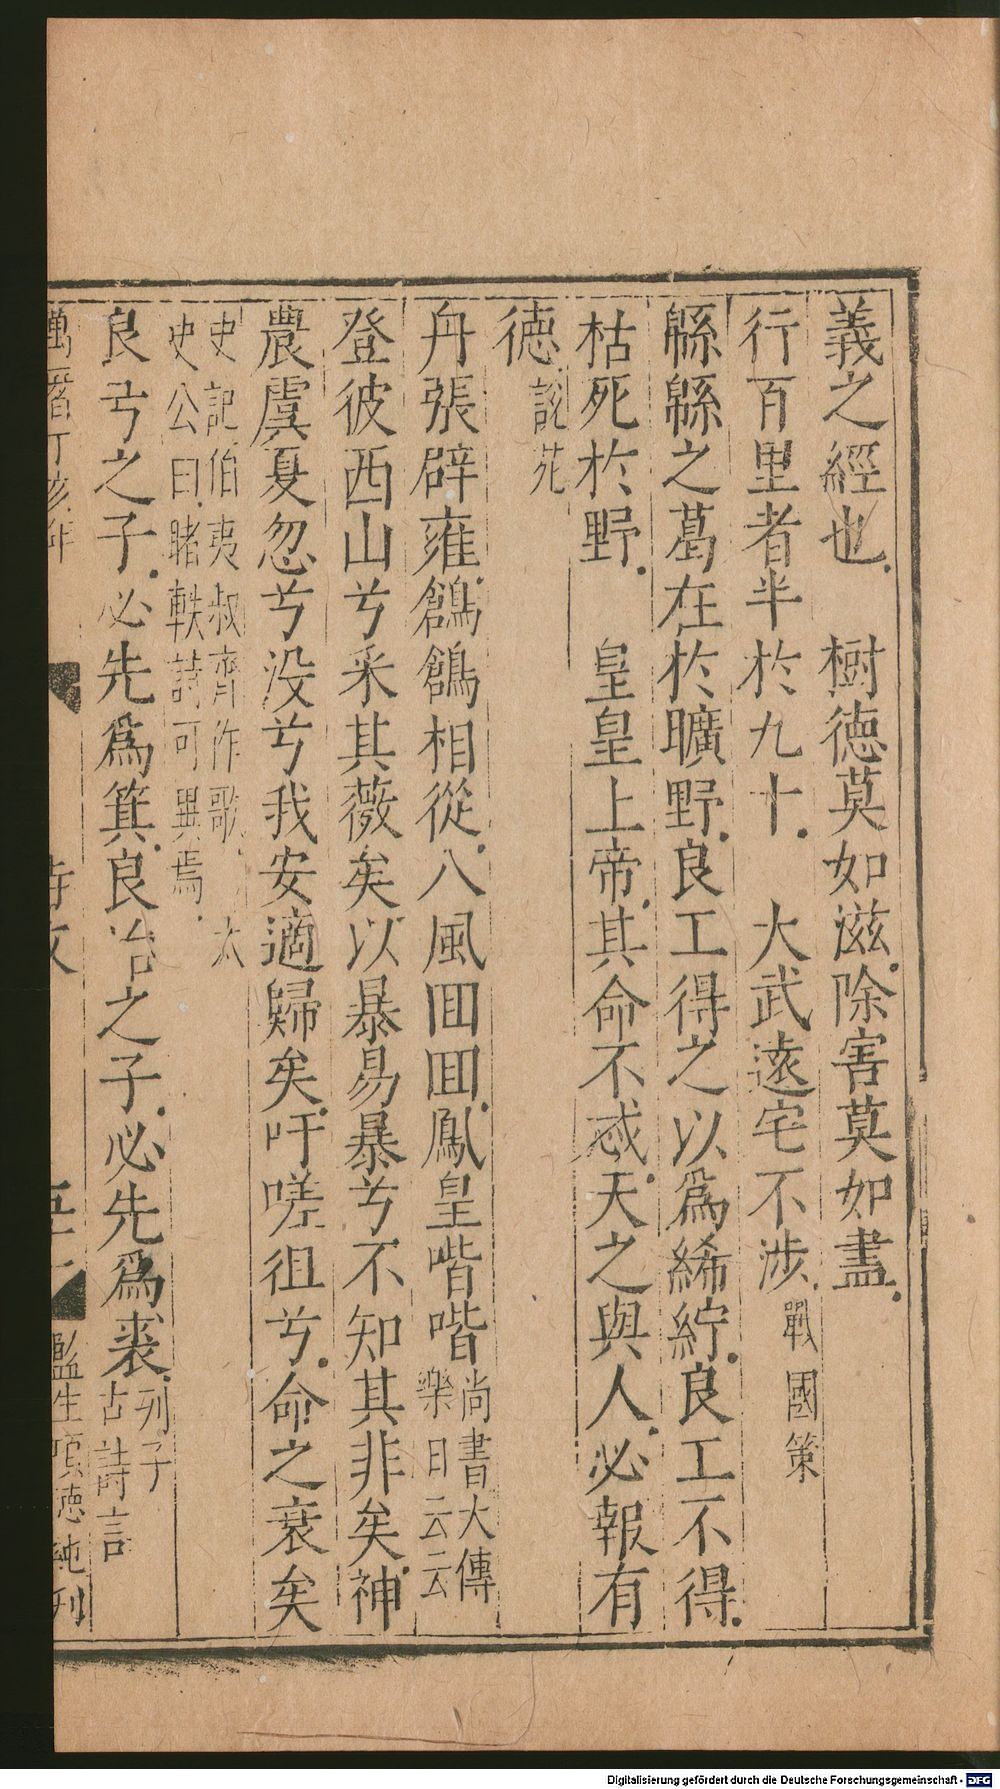 義之經也。　樹德莫如滋。除害莫如盡。
行百里者半於九十。　大武遠宅不涉。戰國策
緜緜之葛在於曠野。良工得之以爲絺紵。良工不得。
枯死於野。　皇皇上帝。其命不忒。天之與人。必報有
德。說苑
舟張辟雍。鶬鶬相從。八風回回。鳳皇喈喈尚書大傳
樂曰云云
登彼西山兮采其薇矣以暴易暴兮不知其非矣。神
農虞夏忽兮没兮我安適歸矣。吁嗟徂兮。命之衰矣
史記伯夷叔齊作歌。　太
史公曰。睹軼詩可異焉。
良弓之子。必先爲箕。良冶之子。必先爲裘。列子
古詩言
萬曆丁亥年
詩文
監生項德純刊
Digitalisierung gefördert durch die Deutsche Forschungsgemeinschaft - DFG